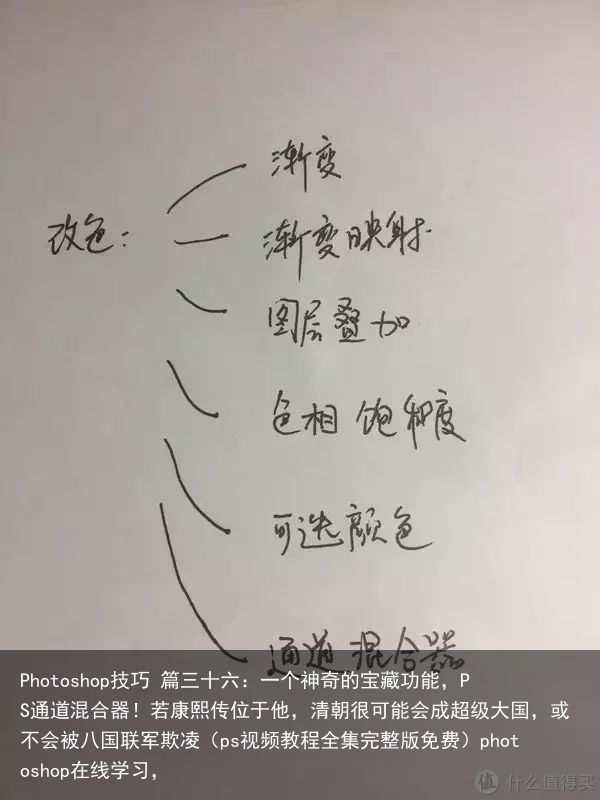 渐变
改色：
渐变映射
图层叠加
色相 饱和度
可选颜色
通道 混合器
Photoshop技巧 篇三十六：一个神奇的宝藏功能，P
S通道混合器！若康熙传位于他，清朝很可能会成超级大国，或
不会被八国联军欺凌（ps视频教程全集完整版免费）phot
oshop在线学习，
值 什么值得买